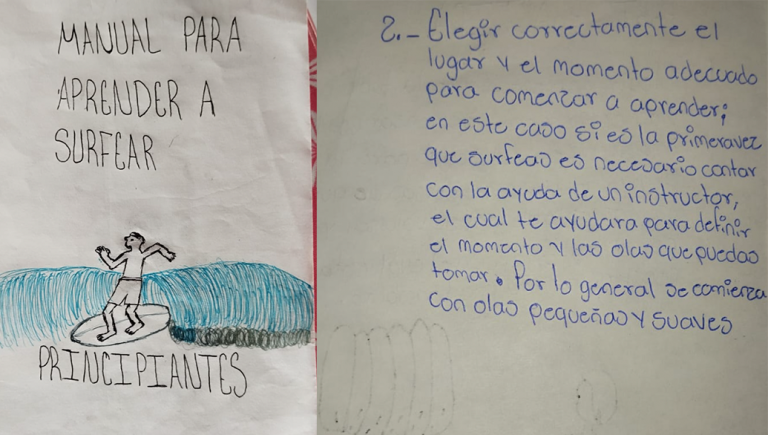 MANUAL PARA
APRENDER A
SURFEAR
PRINCIPIANTES
2.- Elegir correctamente el
lugar y el momento adecuado
para comenzar a aprender;
en este caso si es la primera vez
que surfeas es necesario contar
con la ayuda de un instructor,
el cual te ayudara para definir
el momento y las olas que puedas
tomar. Por lo general se comienza
con olas pequeñas y suaves